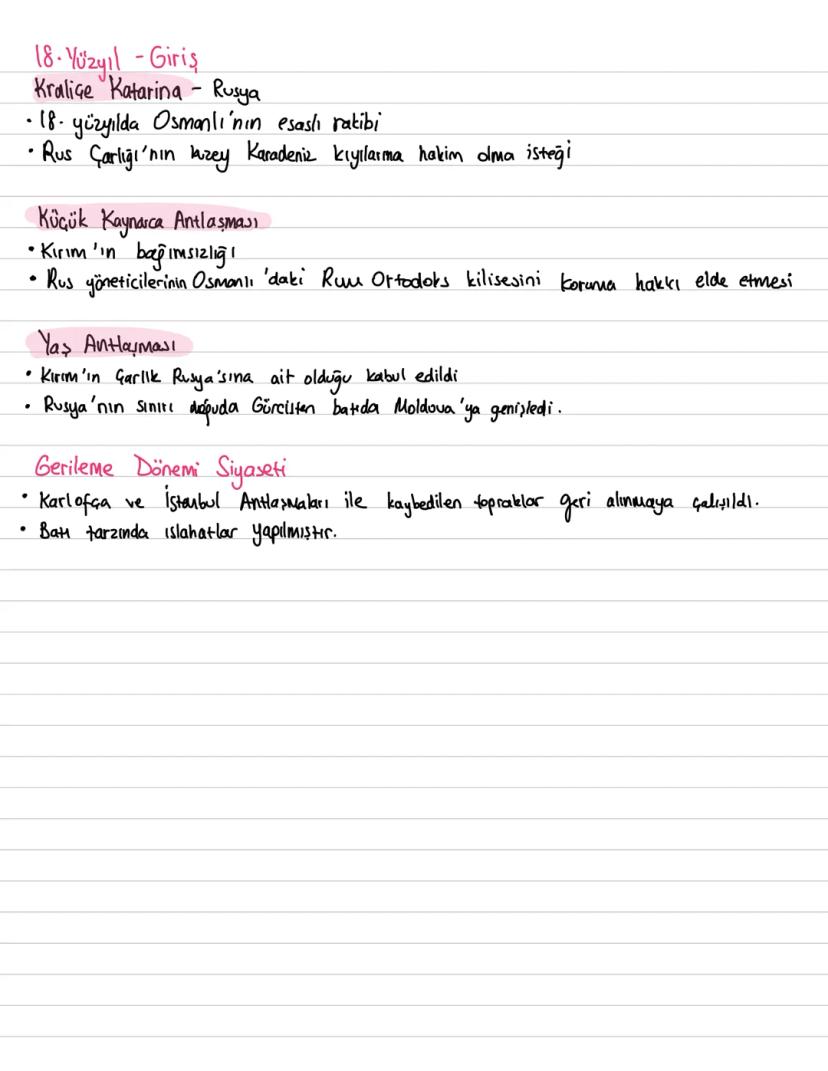 18. Yüzyıl - Giriş
Kraliçe Katarina - Rusya
• 18. yüzyılda Osmanlı'nın esaslı rakibi
• Rus Çarlığı'nın kuzey Karadeniz kıyılarına hakim olma isteği
Küçük Kaynarca Antlaşması
• Kırım'ın bağımsızlığı
• Rus yöneticilerinin Osmanlı'daki Rum Ortodoks kilisesini koruma hakkı elde etmesi
Yaş Antlaşması
• Kırım'ın Çarlık Rusya'sına ait olduğu kabul edildi
• Rusya'nın sınırı doğuda Gürcistan batıda Moldova'ya genişledi.
Gerileme Dönemi Siyaseti
• Karlofça ve İstanbul Antlaşmaları ile kaybedilen topraklar geri alınmaya çalışıldı.
• Batı tarzında ıslahatlar yapılmıştır.